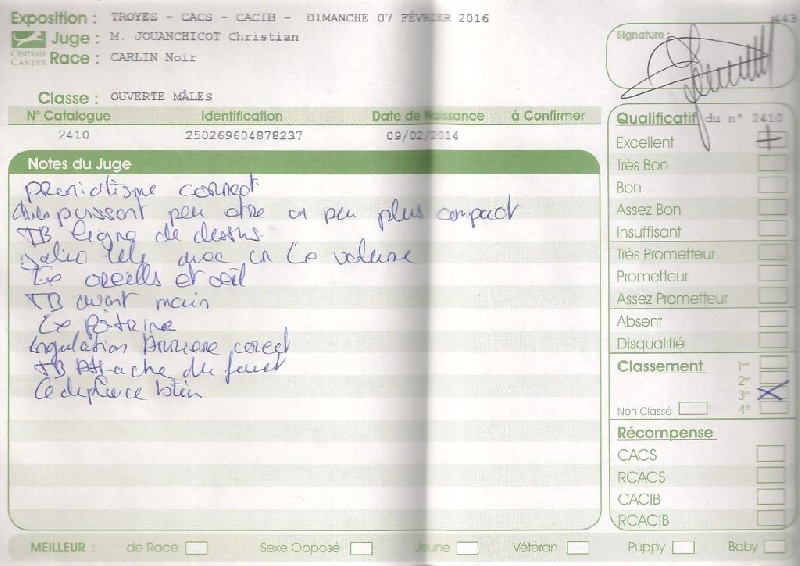 Exposition : TROYES - CACS - CACIB - DIMANCHE 07 FÉVRIER 2016
Juge : M. JOUANCHICOT Christian
CENTRALE CANINE
Race : CARLIN Noir
Classe : OUVERTE MÂLES
Signature :
N° Catalogue Identification Date de Naissance à Confirmer
2410 250269604878237 09/02/2014
Notes du Juge
correct
puissant peu etre un peu plus compact
TB ligne de dessus
Jolie tete avec un Ex volume
Ex oreilles et oeil
TB avant main
Ex Poitrine
Angulation Arriere correct
TB Attache du fouet
Ce deplace bien
Qualificatif du n° 2410
Excellent
Très Bon
Bon
Assez Bon
Insuffisant
Très Prometteur
Prometteur
Assez Prometteur
Absent
Disqualifié
Classement 1er
2e
3e
Non Classé 4e
Récompense
CACS
RCACS
CACIB
RCACIB
MEILLEUR : de Race Sexe Opposé Jeune Vétéran Puppy Baby